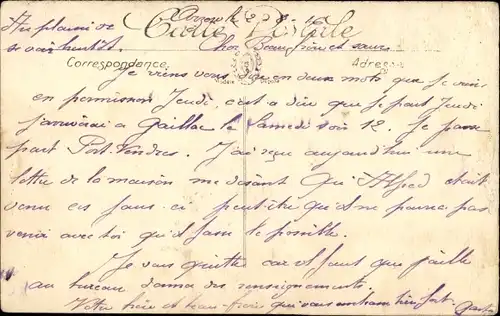 Au plaisir de
se voir bientôt.
Carte Postale
Cher Beau frère et sœur
Correspondance
Adresse
Je viens vous dire en deux mots que je viens
en permission Jeudi, c'est a dire que je part Jeudi
j'arriverai a Gaillac le Samedi soir 12. Je passe
part Port-Vendres. J'ai reçu aujourd'hui une
lettre de la maison me disant Qu'Alfred était
venu ces jours ci peut être qu'il ne pourra pas
venir avec toi qu'il fasse le possible.
Je vous quitte car il faut que j'aille
au bureau donner des renseignements.
Votre frère et beau-frère qui vous embrasse bien fort